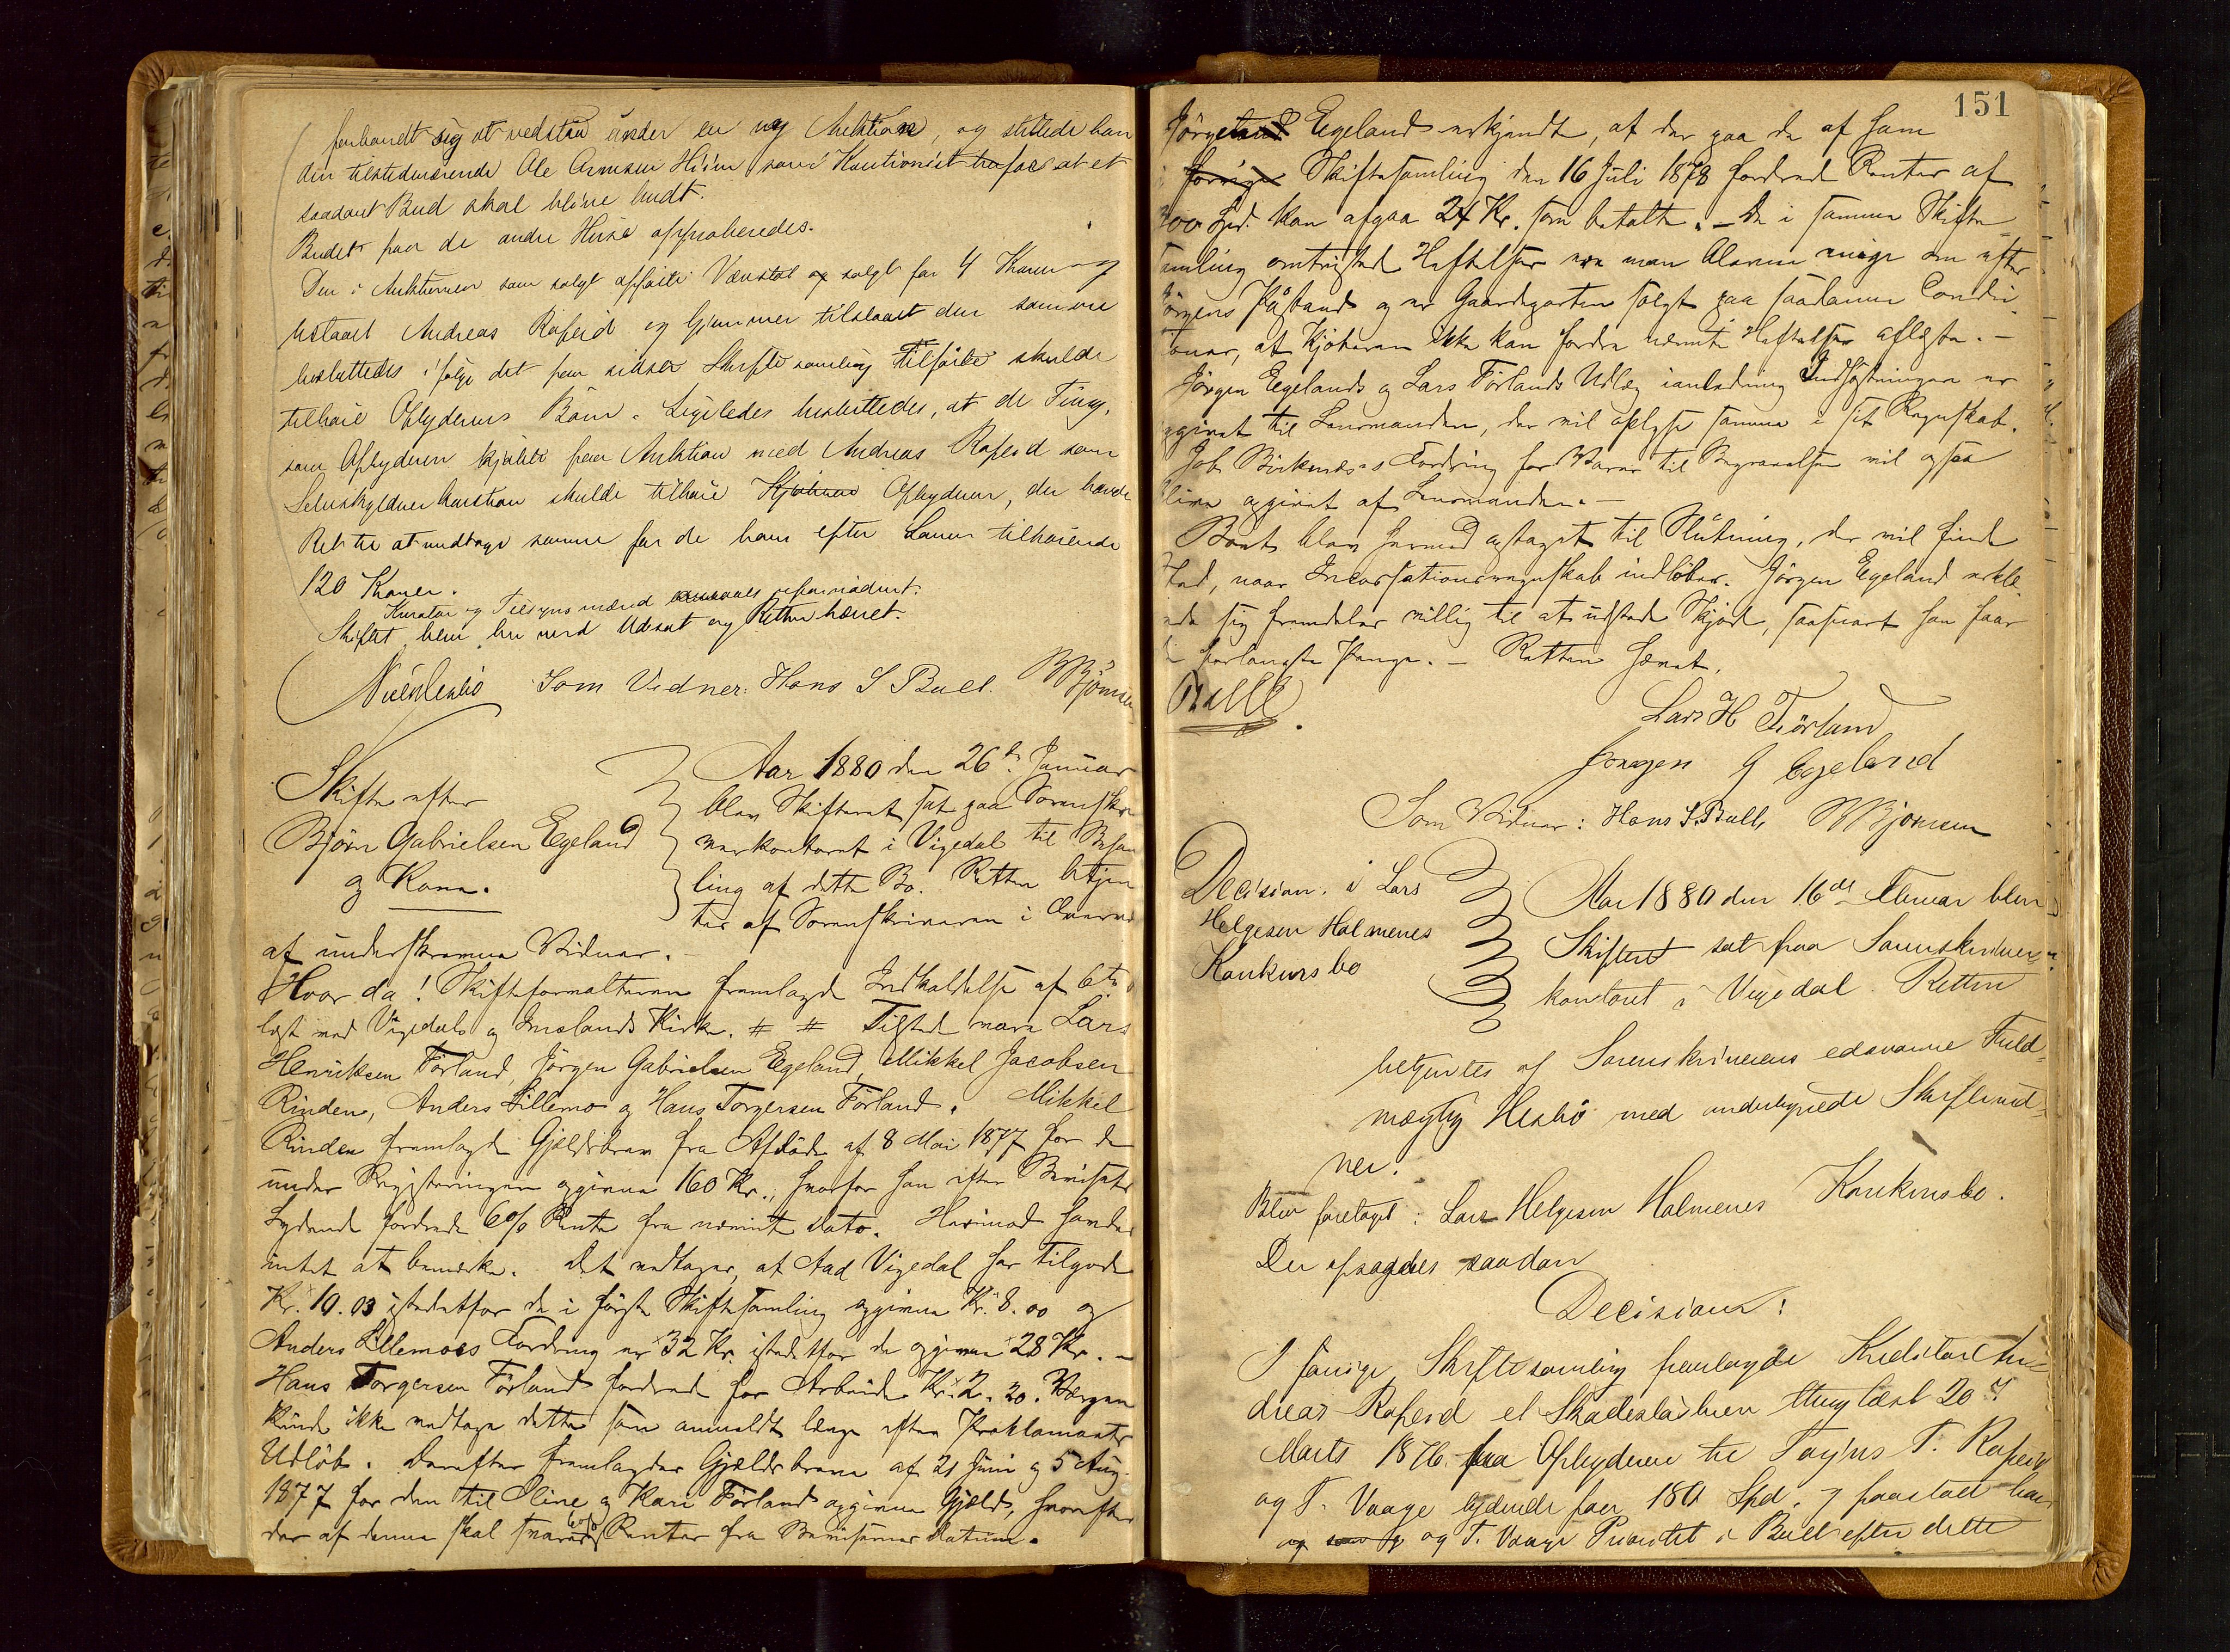 forbandt sig at vedstaa under en ny Auktion, og stillede han
den tilstedeværende Ole Arnesen som Kautionist for at et
saadant Bud skal blive budt.
Budet paa de andre Huse approberedes.
Den i Auktionen som solgt opførte Vævstol og solgt for 4 Kroner og
tilslaaet Andreas Rafoss og tilslaaet den samme
besluttedes ifølge det paa sidste Skiftesamling tilførte skulde
tilhøre Opbyderens Børn. Ligeledes besluttedes, at de Ting,
som Opbyderen kjøbte paa Auktion med Andreas som
Selvskyldnerkaution skulde tilhøre Kjøberen Opbyderen, der havde
Ret til at modtage samme for de ham efter Loven tilhørende
120 Kroner.
Kurator og Tilsynsmænd
Skiftet blev hermed Udsat og Retten hævet.
Som Vidner: Hans S Bull. Bjørnsen
Skifte efter
Bjørn Gabrielsen Egeland
og Kone.
Aar 1880 den 26de Januar
blev Skifteret sat paa Sorenskri-
verkontoret i Vigedal til Behand
ling af dette Bo. Retten betjen
tes af Sorenskriveren i Overvær
af underskrevne Vidner. –
Hvor da! Skifteforvalteren fremlagde Indkaldelse af 6te
læst ved Vigedals og Imslands Kirke. # # Tilstede vare Lars
Henriksen Førland, Jørgen Gabrielsen Egeland, Mikkel Jacobsen
Rinden, Anders Lillemo og Hans Torgersen Førland. Mikkel
Rinden fremlagde Gjældsbrev fra Afdøde af 8 Mai 1877 for de
under Registeringen opgivne 160 Kr., hvorfor han efter Bevisets
Lydende fordrede 6% Rente fra nævnte Dato. Herimod havdes
intet at bemærke. Det vedtages, at Aad Vigedal har tilgode
Kr. 10.03 istedetfor de i første Skiftesamling opgivne Kr. 8.00 og
Anders Lillemoes Fordring er 32 Kr. istedetfor de opgivne 28 Kr. –
Hans Torgersen Førland fordrede for Arbeide Kr. 2.20. Værgen
kunde ikke vedtage dette som anmeldt længe efter Proklamaets
Udløb. Derefter fremlagdes Gjældsbreve af 21 Juni og 5 Aug.
1877 for den til Oline og Kari Førland opgivne Gjæld, hvorefter
der af denne skal svares 6% Renter fra Bevisernes Datum.
151
Jørgen Egeland erkjendt, at der paa de af ham
i forrige Skiftesamling den 16 Juli 1878 fordrede Renter af
300 Spd. kan afgaa 24 Kr. som betalt. – De i samme Skifte-
samling omtvistede Heftelser man
Jørgens Paastand og er Gaardparten solgt paa saadanne Condi-
tioner, at Kjøberen ikke kan fordre nævnte Heftelser aflyste. –
Jørgen Egelands og Lars Førlands Udlæg ianledning Indhøstningen er
opgivet til Lensmanden, der vil oplyse samme i sit Regnskab.
Job Birkenæs's Fordring for Varer til Begravelsen vil ogsaa
blive opgivet af Lensmanden. –
Boet blev hermed optaget til Slutning, der vil finde
Sted, naar Incassationsregnskab indløber. Jørgen Egeland erklæ-
rede sig fremdeles villig til at udstede Skjøde, saasnart han faar
de forlangte Penge. – Retten hævet.
Lars H Førland
Jørgen G Egeland
Som Vidner: Hans S. Bull, Bjørnsen
Decision i Lars
Helgesen Halmenes
Konkursbo
Aar 1880 den 16de Februar blev
Skifteret sat paa Sorenskriver-
kontoret i Vigedal. Retten
betjentes af Sorenskriverens edsvorne Fuld-
mægtig Hesbø med undertegnede Skiftevid-
ner.
Blev foretaget: Lars Helgesen Halmenes Konkursbo.
Der afsagdes saadan
Decision:
I forrige Skiftesamling fremlagde Kreditor An-
dreas et Skadesløsbrev thinglæst 20de
Marts 1876 fra Opbyderen til T.
og T. Vaage lydende paa 180 Spd. og paastod han
og som og og T. Vaage Prioritet i Boet efter dette